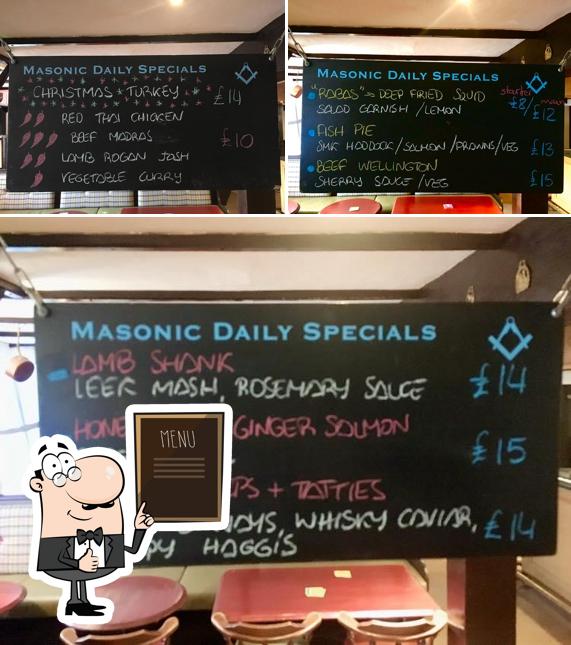 MASONIC DAILY SPECIALS
CHRISTMAS TURKEY £14
RED THAI CHICKEN
BEEF MADRAS £10
LAMB ROGAN JOSH
VEGETABLE CURRY
MASONIC DAILY SPECIALS
"RABAS" DEEP FRIED SQUID starter main
SALAD GARNISH / LEMON £8/£12
FISH PIE
SMK HADDOCK/SALMON/PRAWNS/VEG £13
BEEF WELLINGTON
SHERRY SAUCE / VEG £15
MASONIC DAILY SPECIALS
LAMB SHANK
LEEK MASH, ROSEMARY SAUCE £14
GINGER SALMON
£15
+ TATTIES
WHISKY CAVIAR, £14
HAGGIS
MENU